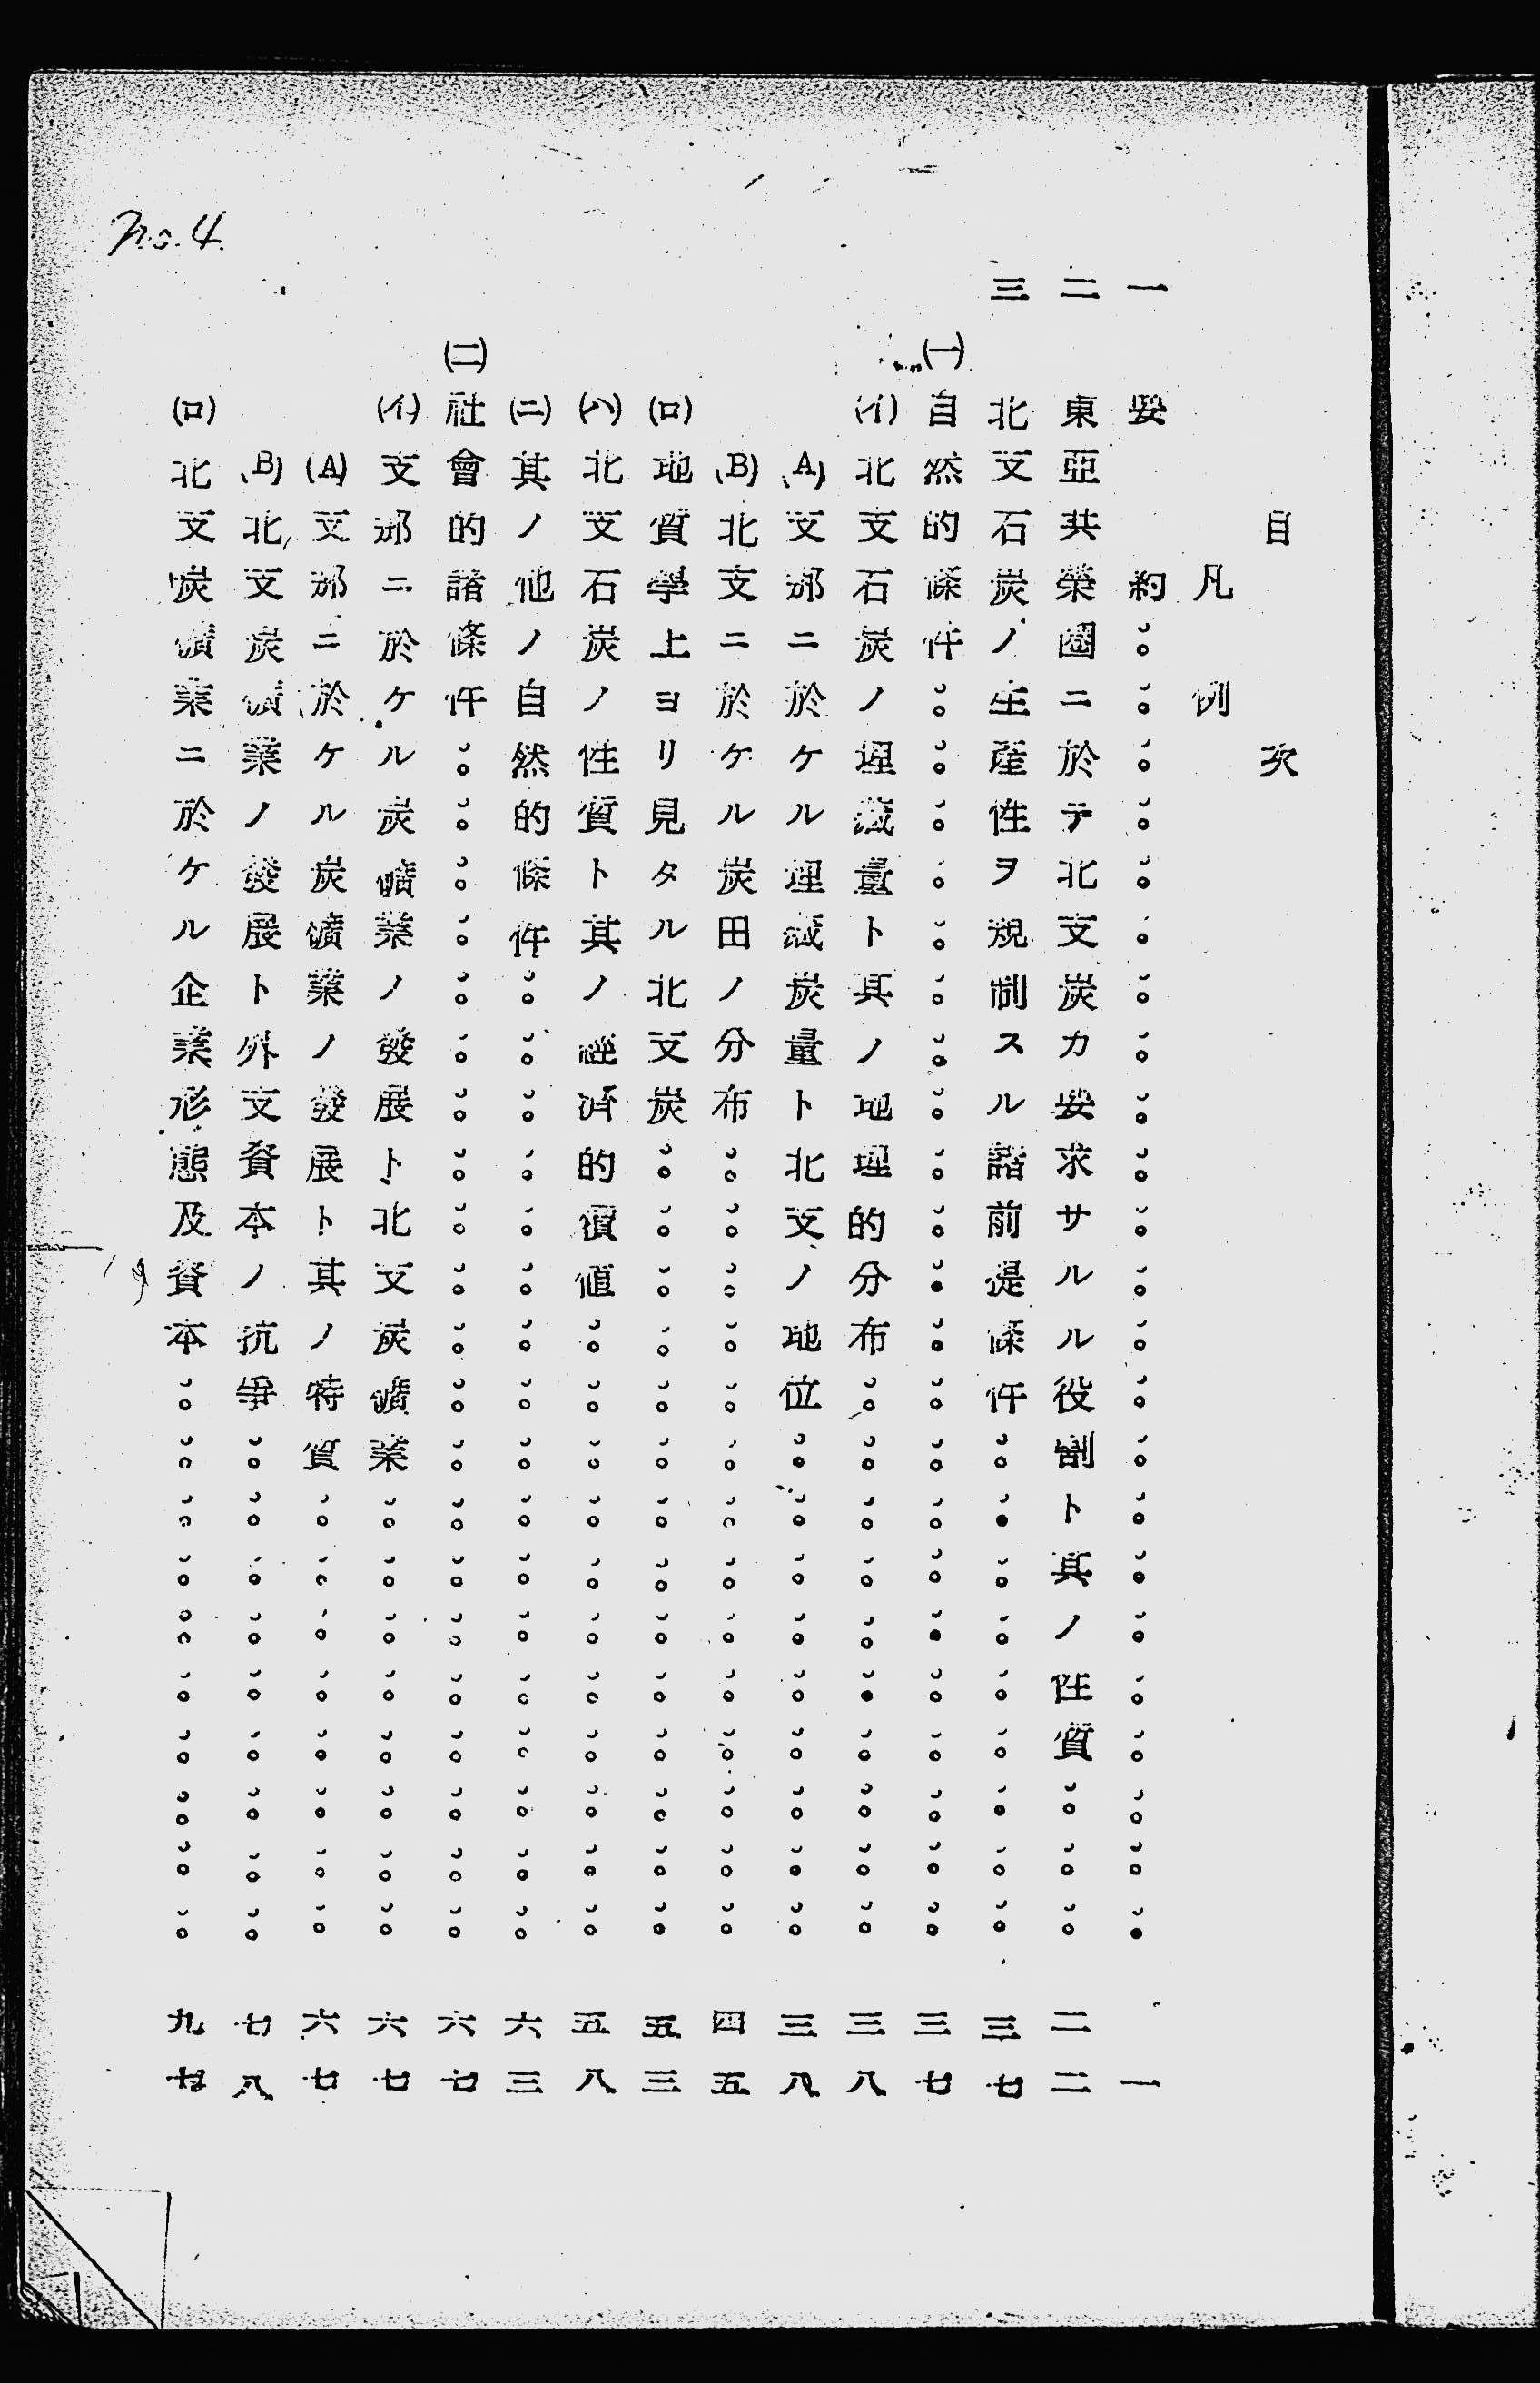 No.4.
目次
凡例
一 要約…………一
二 東亞共榮圈ニ於テ北支炭カ要求サルル役割ト其ノ性質…………二二
三 北支石炭ノ生産性ヲ規制スル諸前提條件…………三七
(一) 自然的條件…………三七
(イ) 北支石炭ノ埋藏量ト其ノ地理的分布…………三八
(A) 支那ニ於ケル埋藏炭量ト北支ノ地位…………三八
(B) 北支ニ於ケル炭田ノ分布…………四五
(ロ) 地質學上ヨリ見タル北支炭…………五三
(ハ) 北支石炭ノ性質ト其ノ經濟的價値…………五八
(ニ) 其ノ他ノ自然的條件…………六三
(二) 社會的諸條件…………六七
(イ) 支那ニ於ケル炭礦業ノ發展ト北支炭礦業…………六七
(A) 支那ニ於ケル炭礦業ノ發展ト其ノ特質…………六七
(B) 北支炭礦業ノ發展ト外支資本ノ抗爭…………七八
(ロ) 北支炭礦業ニ於ケル企業形態及資本…………九七